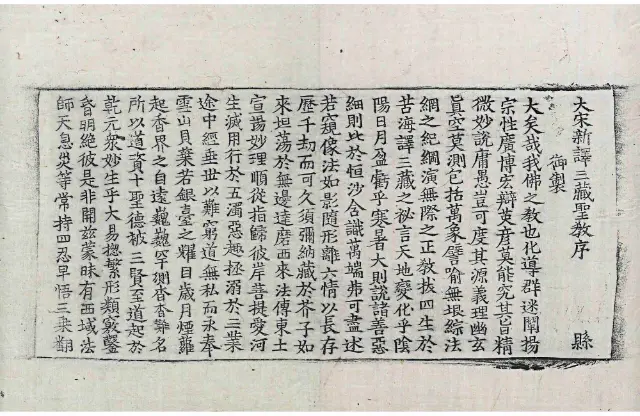 大宋新譯三藏聖教序
御製
縣
大矣哉我佛之教也化導群迷闡揚
宗性廣博宏辯英彥莫能究其旨精
微妙說庸愚豈可度其源義理幽玄
眞空莫測包括萬象譬喻無垠綜法
網之紀綱演無際之正教拔四生於
苦海譯三藏之祕言天地變化乎陰
陽日月盈虧乎寒暑大則說諸善惡
細則比於恒沙含識萬端弗可盡述
若窺像法如影隨形離六情以長存
歷千劫而可久須彌納藏於芥子如
來坦蕩於無邊達磨西來法傳東土
宣揚妙理順從指歸彼岸菩提愛河
生滅用行於五濁惡趣拯溺於三業
途中經垂世以難窮道無私而永奉
雪山貝葉若銀臺之耀目歲月煙蘿
起香界之自遠巍巍罕測杳杳難名
所以道資十聖德被三賢至道起於
乾元衆妙生乎太易揔繁形類竅鑿
昏明絶彼是非開兹蒙昧有西域法
師天息災等常持四忍早悟三乘翻